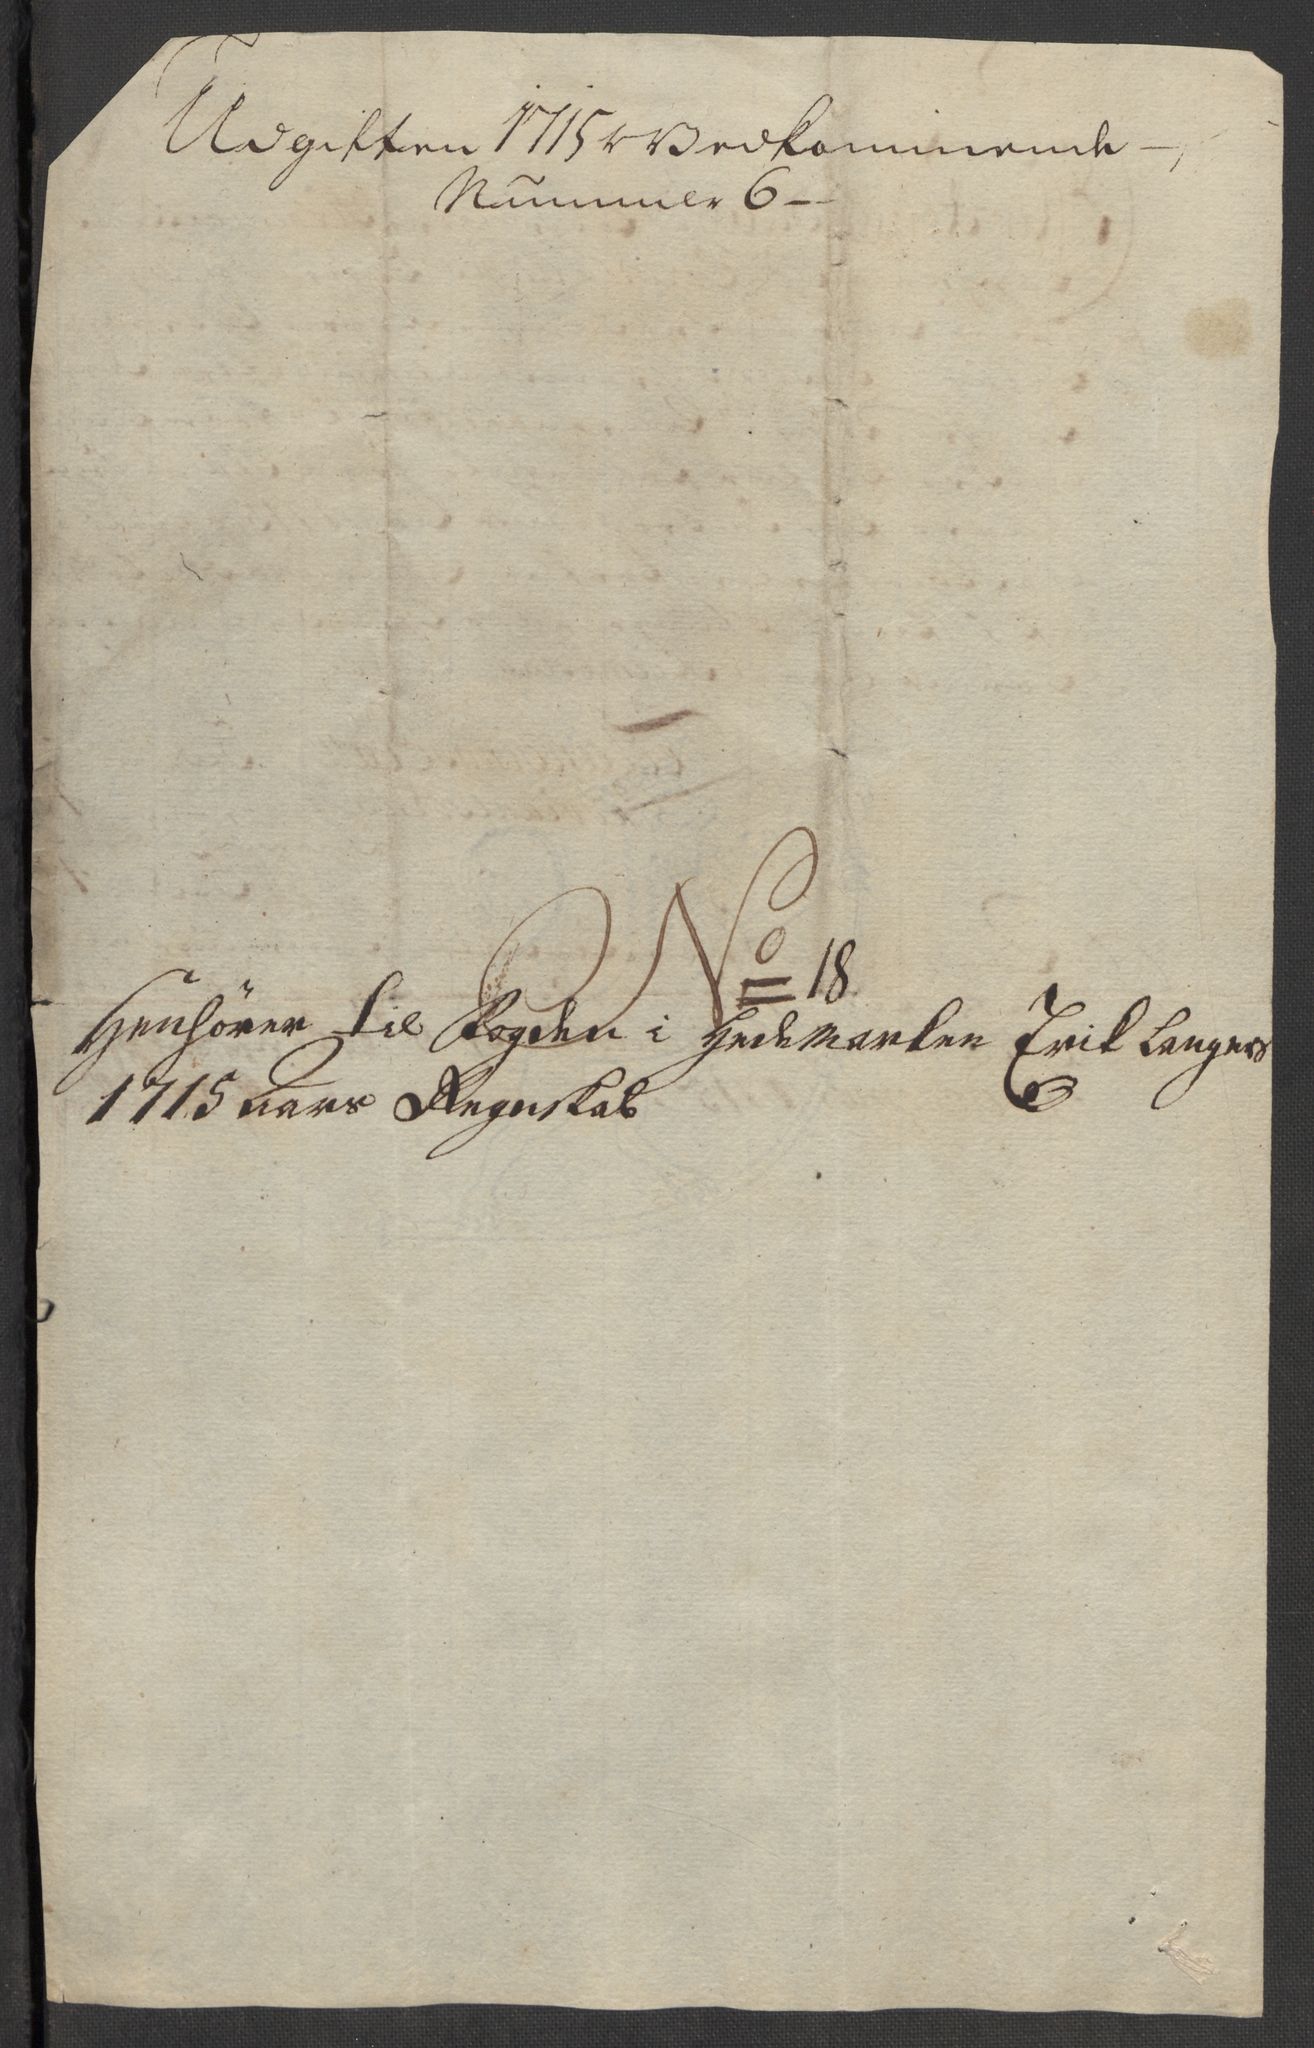 Udgiften 1715 Vedkommende
Nummer 6
No 18
Henhörer til Fogden i Hedemarken Erik Langes
1715 aars Regnskab